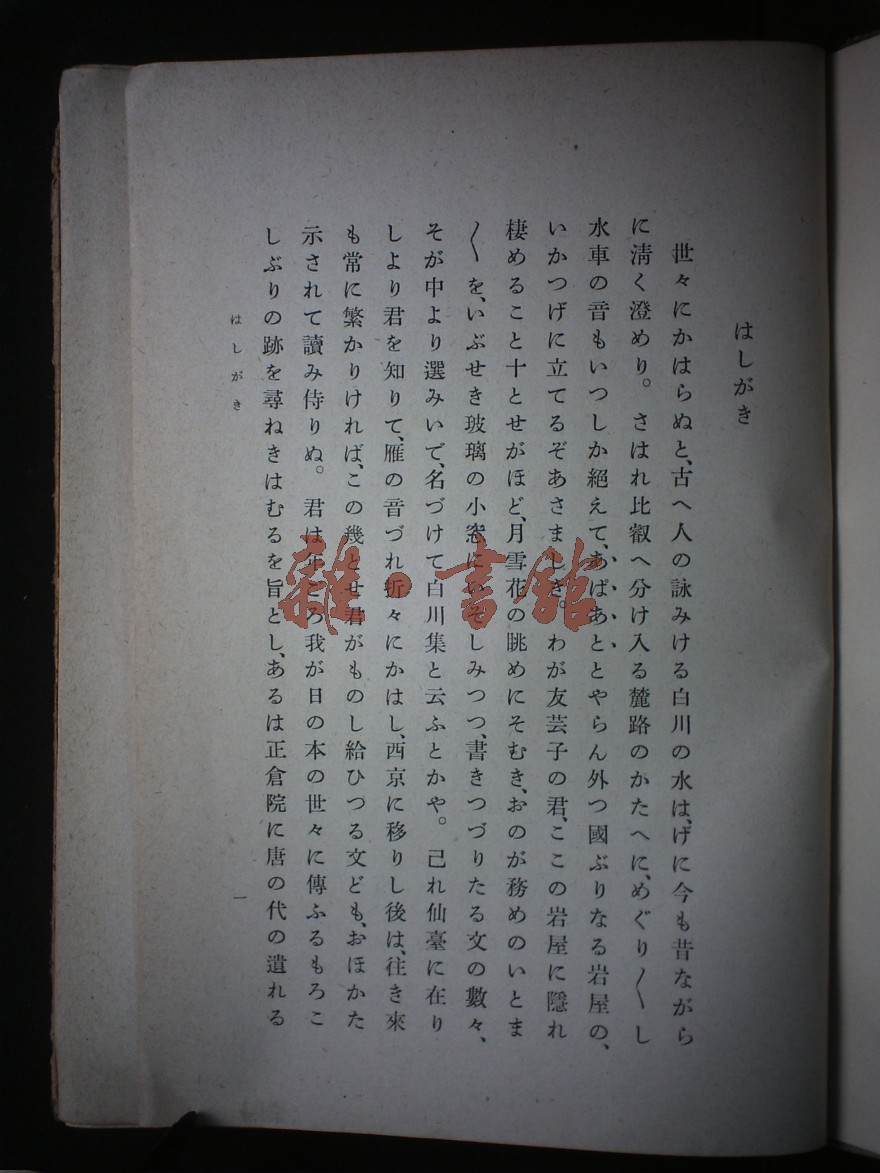 はしがき
世々にかはらぬと、古へ人の詠みける白川の水は、げに今も昔ながら
に淸く澄めり。さはれ比叡へ分け入る麓路のかたへに、めぐり〳〵し
水車の音もいつしか絕えて、あぱあととやらん外つ國ぶりなる岩屋の、
いかつげに立てるぞあさましき。わが友芸子の君、ここの岩屋に隱れ
棲めること十とせがほど、月雪花の眺めにそむき、おのが務めのいとま
〳〵を、いぶせき玻璃の小窓にいそしみつつ、書きつづりたる文の數々、
そが中より選みいで、名づけて白川集と云ふとかや。己れ仙臺に在り
しより君を知りて、雁の音づれ折々にかはし、西京に移りし後は、往き來
も常に繁かりければ、この幾とせ君がものし給ひつる文ども、おほかた
示されて讀み侍りぬ。君は年ごろ我が日の本の世々に傳ふるもろこ
しぶりの跡を尋ねきはむるを旨とし、あるは正倉院に唐の代の遺れる
はしがき
一
雜·書館